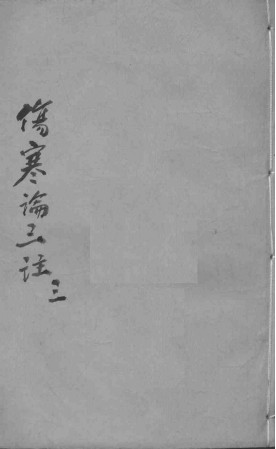 傷寒論三註
三